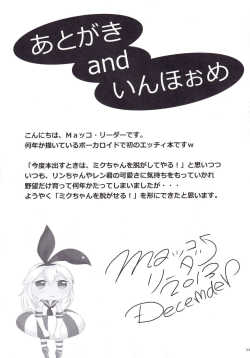 あとがき
and
いんほぉめ
こんにちは、Maッコ・リーダーです。
何年か描いているボーカロイドで初のエッチィ本ですw
「今度本出すときは、ミクちゃんを脱がしてやる！」と思いつつ
いつも、リンちゃんやレン君の可愛さに気持ちをもていかれ
野望だけ育って何年かたってしまいましたが・・・
ようやく「ミクちゃんを脱がせる！」を形にできたと思います。
Maッコ
リーダー
2013
December